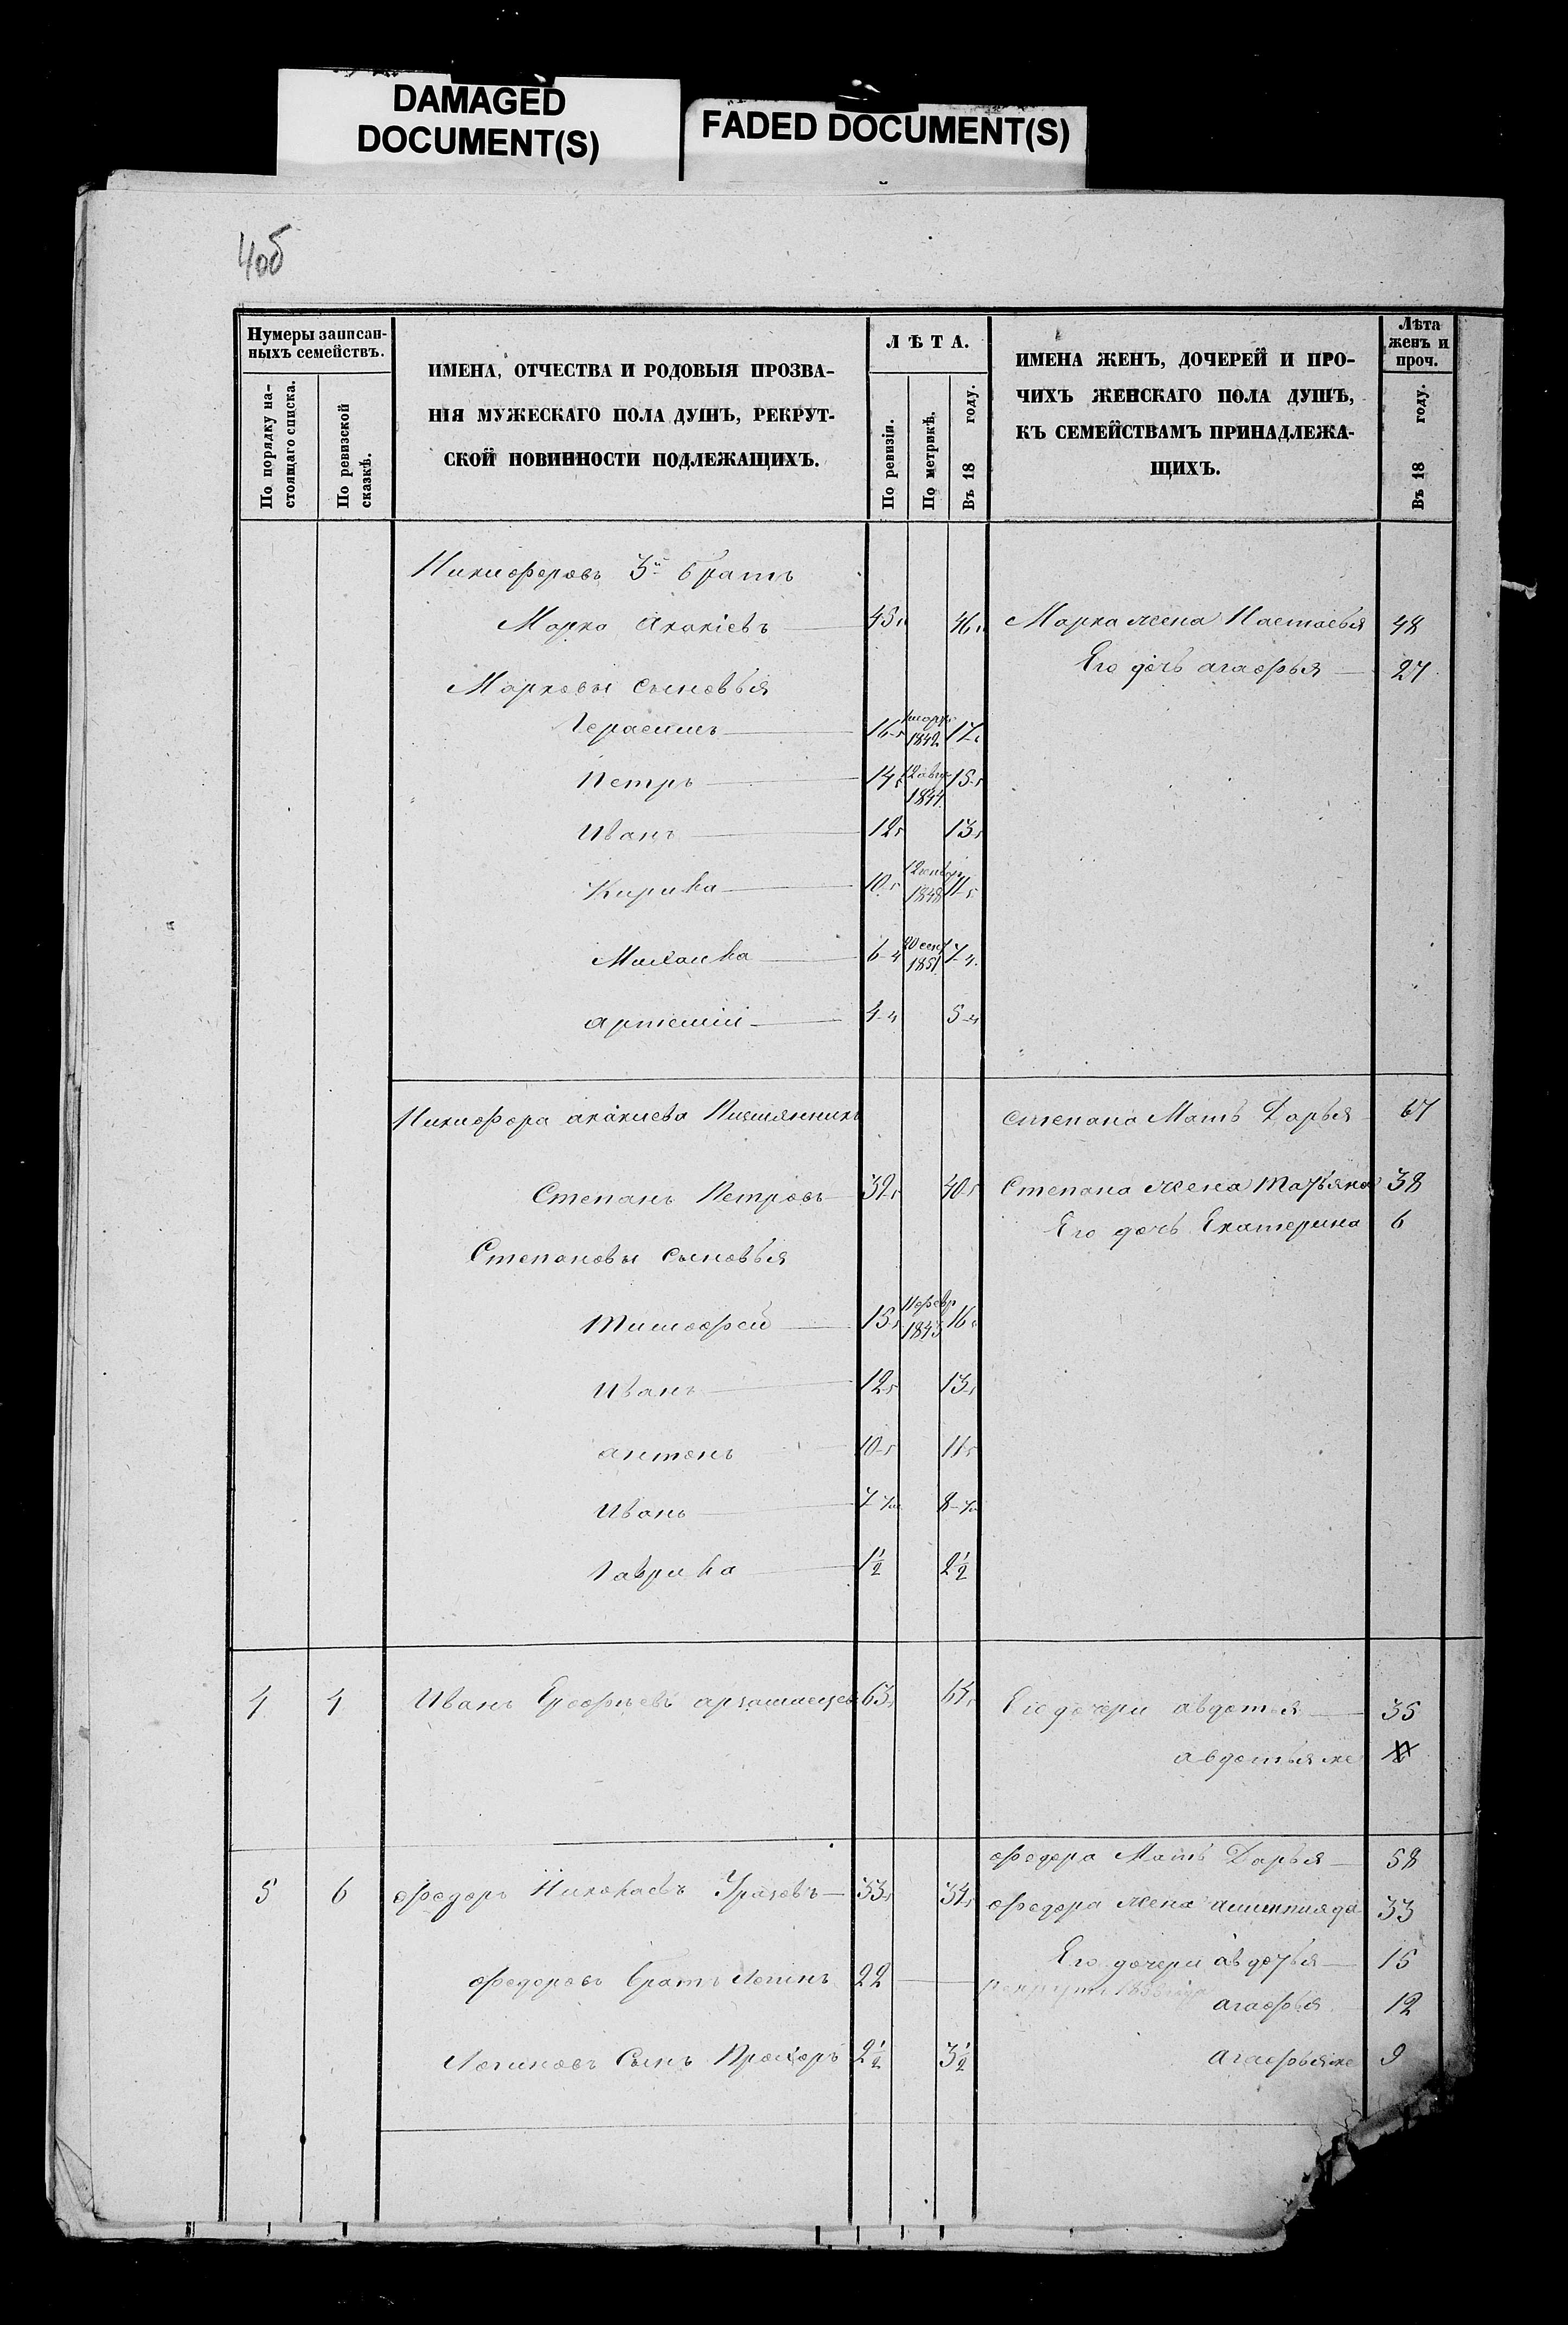 DAMAGED
DOCUMENT(S)
FADED DOCUMENT(S)
Нумеры записан-
ныхъ семействъ.
По порядку на-
стоящаго списка.
По ревизской
сказкѣ.
ИМЕНА, ОТЧЕСТВА И РОДОВЫЯ ПРОЗВА-
НІЯ МУЖЕСКАГО ПОЛА ДУШЪ, РЕКРУТ-
СКОЙ ПОВИННОСТИ ПОДЛЕЖАЩИХЪ.
ЛѢТА.
По ревизіи.
По метрикѣ.
Въ 18 году.
ИМЕНА ЖЕНЪ, ДОЧЕРЕЙ И ПРО-
ЧИХЪ ЖЕНСКАГО ПОЛА ДУШЪ,
КЪ СЕМЕЙСТВАМЪ ПРИНАДЛЕЖА-
ЩИХЪ.
Лѣта
женъ и
проч.
Въ 18 году.
Никифоровъ 3й братъ
Марко Акакіевъ 45 46 Марка жена Настасья 48
Его дочь агафья 27
Марковы сыновья
Герасимъ 16 1842 17
Петръ 14 12 авгу 1844 15
Иванъ 12 13
Кирила 10 1848 11
Михаила 6 20 сент 1851 7
артемій 4 5
Никифора акакиева Племянникъ степана Мать Дарья 67
Степанъ Петровъ 39 40 Степана жена татьяна 38
Его дочь Екатерина 6
Степановы сыновья
Тимофей 15 февр 1843 16
Иванъ 12 13
антонъ 10 11
Иванъ 7 8
Гаврила 1½ 2½
4 4 Иванъ 63 64 Его дочери авдотья 35
авдотья же
федора Мать Дарья 58
5 6 федоръ Николаевъ 33 34 федора жена 33
федоровъ братъ Логинъ 22 Его дочери авдотья 15
агафья 12
Логиновъ сынъ Прохоръ 2½ 3½ агафья же 9